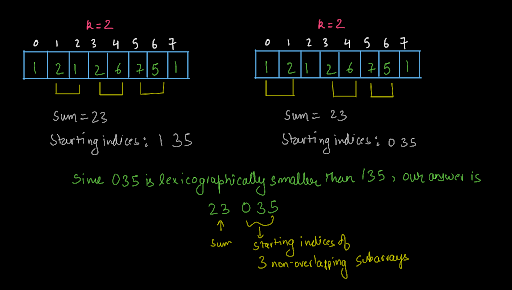 k=2
0 1 2 3 4 5 6 7
1 2 1 2 6 7 5 1
Sum = 23
Starting indices: 1 35
k=2
0 1 2 3 4 5 6 7
1 2 1 2 6 7 5 1
Sum = 23
Starting indices: 0 35
Since 035 is lexicographically smaller than 135, our answer is
23 0 3 5
Sum
Starting indices of
3 non-overlapping subarrays